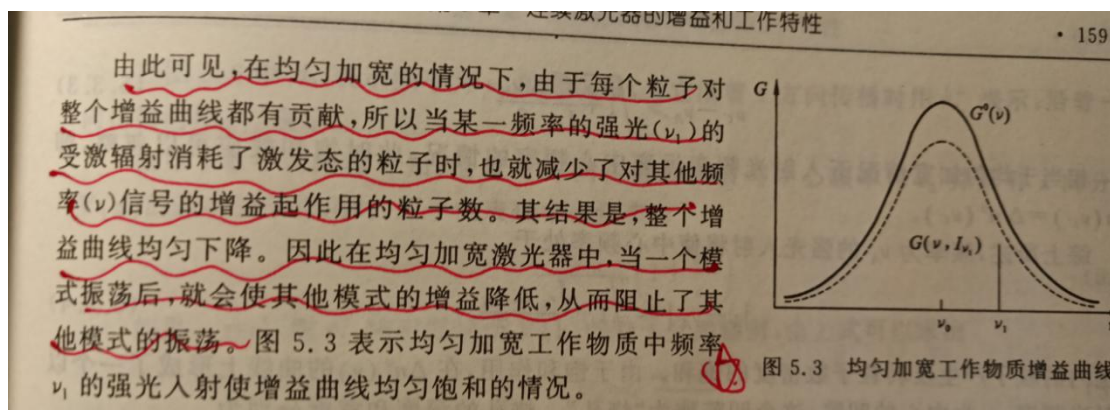 连续激光器的增益和工作特性
· 159
由此可见,在均匀加宽的情况下,由于每个粒子对
整个增益曲线都有贡献,所以当某一频率的强光(ν₁)的
受激辐射消耗了激发态的粒子时,也就减少了对其他频
率(ν)信号的增益起作用的粒子数。其结果是,整个增
益曲线均匀下降。因此在均匀加宽激光器中,当一个模
式振荡后,就会使其他模式的增益降低,从而阻止了其
他模式的振荡。图 5.3 表示均匀加宽工作物质中频率
ν₁ 的强光入射使增益曲线均匀饱和的情况。
G
G⁰(ν)
G(ν,Iᵥ₁)
ν₀
ν₁
图 5.3 均匀加宽工作物质增益曲线